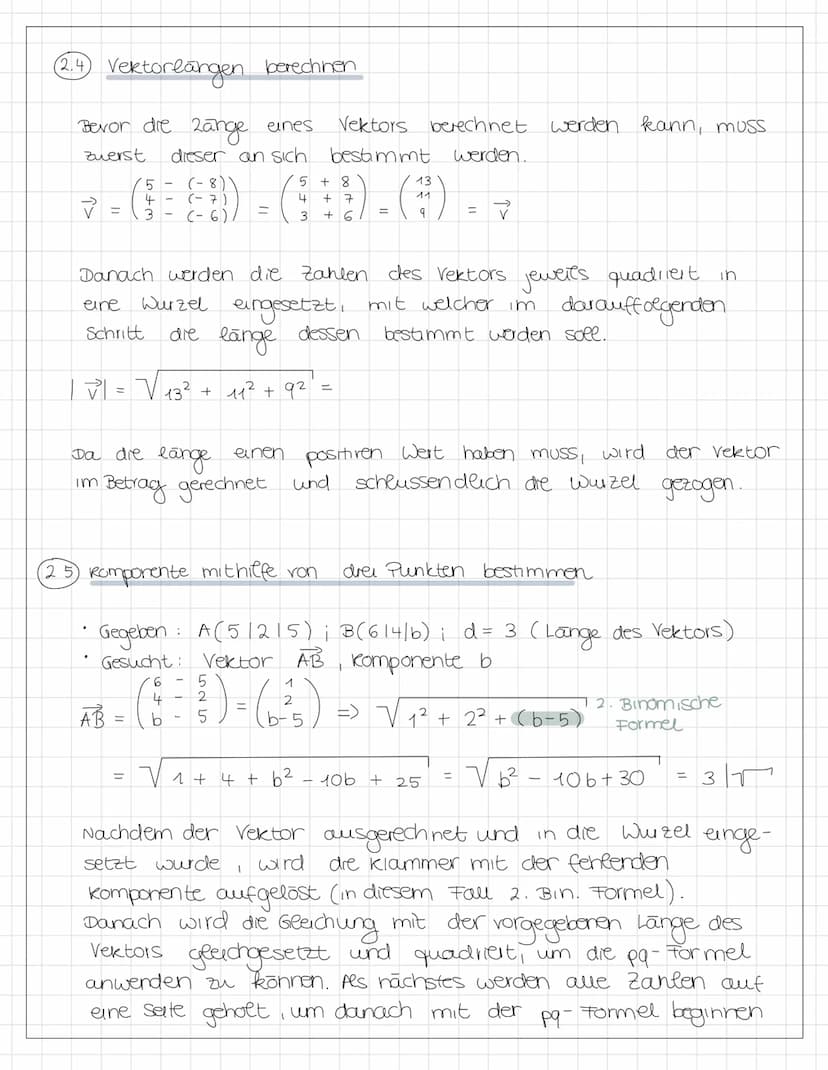 2.4 Vektorlängen berechnen
Bevor die Länge eines Vektors berechnet werden kann, muss
zuerst dieser an sich bestimmt werden.
v⃗ = (5 - (-8) / 4 - (-7) / 3 - (-6)) = (5 + 8 / 4 + 7 / 3 + 6) = (13 / 11 / 9) = v⃗
Danach werden die Zahlen des Vektors jeweils quadriert in
eine Wurzel eingesetzt, mit welcher im darauffolgenden
Schritt die länge dessen bestimmt werden soll.
|v⃗| = √(13² + 11² + 9²) =
Da die länge einen positiven Wert haben muss, wird der Vektor
im Betrag gerechnet und schlussendlich die Wurzel gezogen.
2.5 Komponente mithilfe von drei Punkten bestimmen
• Gegeben: A(5|2|5); B(6|4|b); d = 3 (Länge des Vektors)
• Gesucht: Vektor AB⃗, Komponente b
AB⃗ = (6 - 5 / 4 - 2 / b - 5) = (1 / 2 / b-5) => √(1² + 2² + (b-5)) 2. Binomische Formel
= √(1 + 4 + b² - 10b + 25) = √(b² - 10b + 30) = 3 |√
Nachdem der Vektor ausgerechnet und in die Wurzel einge-
setzt wurde, wird die Klammer mit der fehlenden
Komponente aufgelöst (in diesem Fall 2. Bin. Formel).
Danach wird die Gleichung mit der vorgegebenen Länge des
Vektors gleichgesetzt und quadriert, um die pq-Formel
anwenden zu können. Als nächstes werden alle Zahlen auf
eine Seite geholt, um danach mit der pq-Formel beginnen